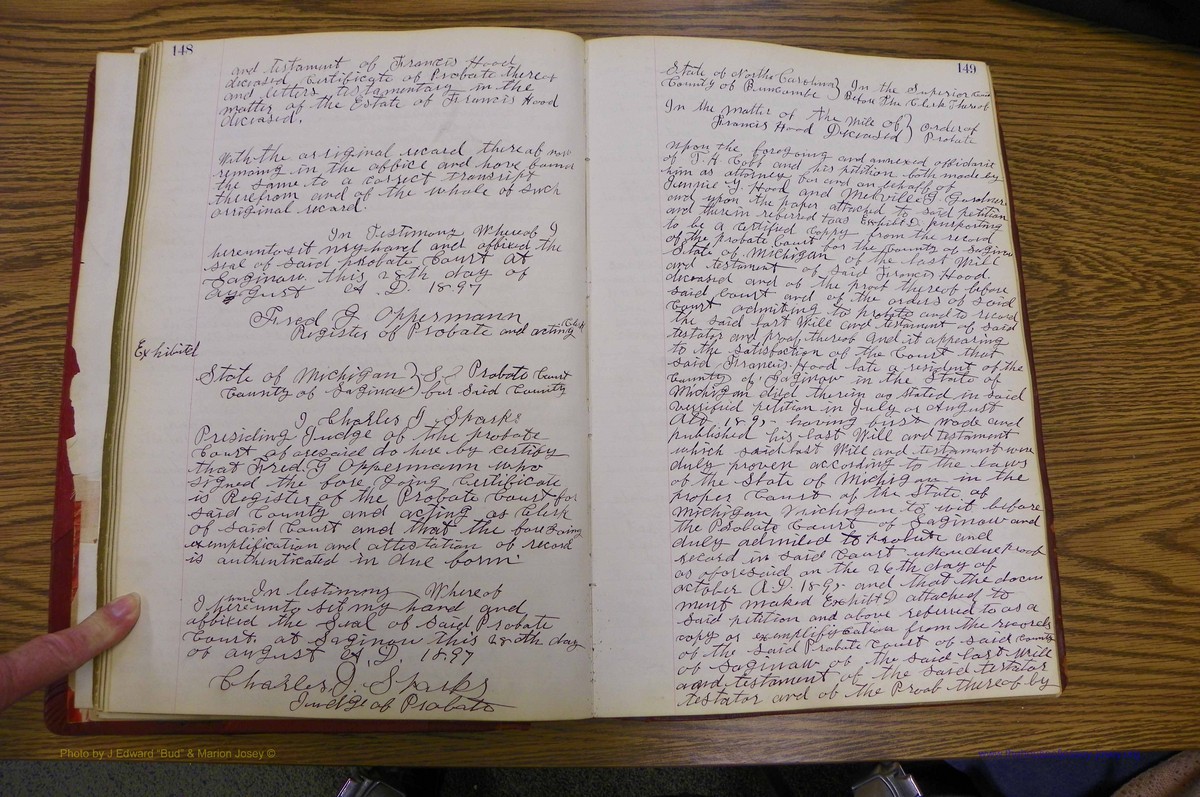 148
and testament of Francis Hood
diceased, Certificate of Probate thereof
and letters testamentary in the
matter of the Estate of Francis Hood
diceased.
With the original record thereof now
remaing in the office and have found
the same to a correct transcript
therefrom and of the whole of such
original record.
In Testimony Whereof I
hereunto sit my hand and affixed the
seal of said probate Court at
Saginaw this 28th day of
August A.D. 1897
Fred G Oppermann
Register of Probate and acting Clerk
Exhibited
State of Michigan } S.S Probate Court
County of Saginaw } for Said County
I Charles J. Sparks
Presiding Judge of the probate
Court aforesaid do here by certify
that Fred. G Oppermann who
signed the fore going Certificate
is Register of the Probate Court for
said County and acting as Clerk
of said Court and that the foregoing
exemplification and attestation of record
is authenticated in due form
In testimony Whereof
I have hereunto sit my hand and
affixed the Seal of Said Probate
Court. at Saginaw this 28th day
of August A.D. 1897
Charles J. Sparks
Judge of Probate
149
State of North Carolina } In the Superior Court
County of Buncombe } Before The Clerk Thereof
In the matter of the Will of } Order of
Francis Hood Deceased } Probate
Upon the foregoing and annexed affidavit
of T. H Cobb and his petition both made by
him as attorney for and on behalf of
Jennie Y Hood and Melville J. Gardner
and upon the paper attached to said petition
and therein referred to as Exhibit D purporting
to be a certified Coppy from the record
of the probate Court for the County of Saginaw
State of Michigan of the last Will
and testament of said Francis Hood.
deceased and of the proof thereof before
said Court and of the orders of said
Court admiting to probate and to record
the said last Will and testament of said
testator and proof thereof and it appearing
to the satisfaction of the Court that
said Francis Hood late a resident of the
County of Saginaw in the State of
Michigan died therein as stated in said
verrified petition in July or August
A.D. 189 having first made and
published his last Will and testament
which said last Will and testament were
duly proven according to the laws
of the State of Michigan in the
proper Court of the State of
Michigan Michigan to wit before
the Probate Court of Saginaw and
duly admited to probate and
record in said Court upon due proof
as aforesaid on the 26th day of
October A.D. 189 and that the docu
ment maked Exhibit D attached to
said petition and above referred to as a
copy or exemplifycation from the records
of the said Probate Court of said County
of Saginaw of the said last Will
and testament of the said testator
testator and of the Proof thereof by
Photo by J Edward "Bud" & Marion Josey ©